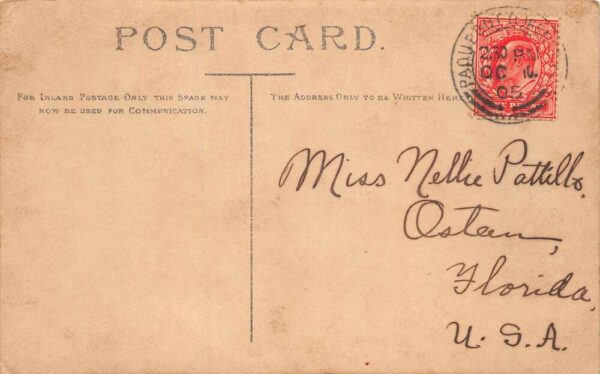 POST CARD.
FOR INLAND POSTAGE ONLY THIS SPACE MAY
NOW BE USED FOR COMMUNICATION.
THE ADDRESS ONLY TO BE WRITTEN HERE
OC
05
Miss Nellie Pattillo,
Osteen,
Florida,
U. S. A.